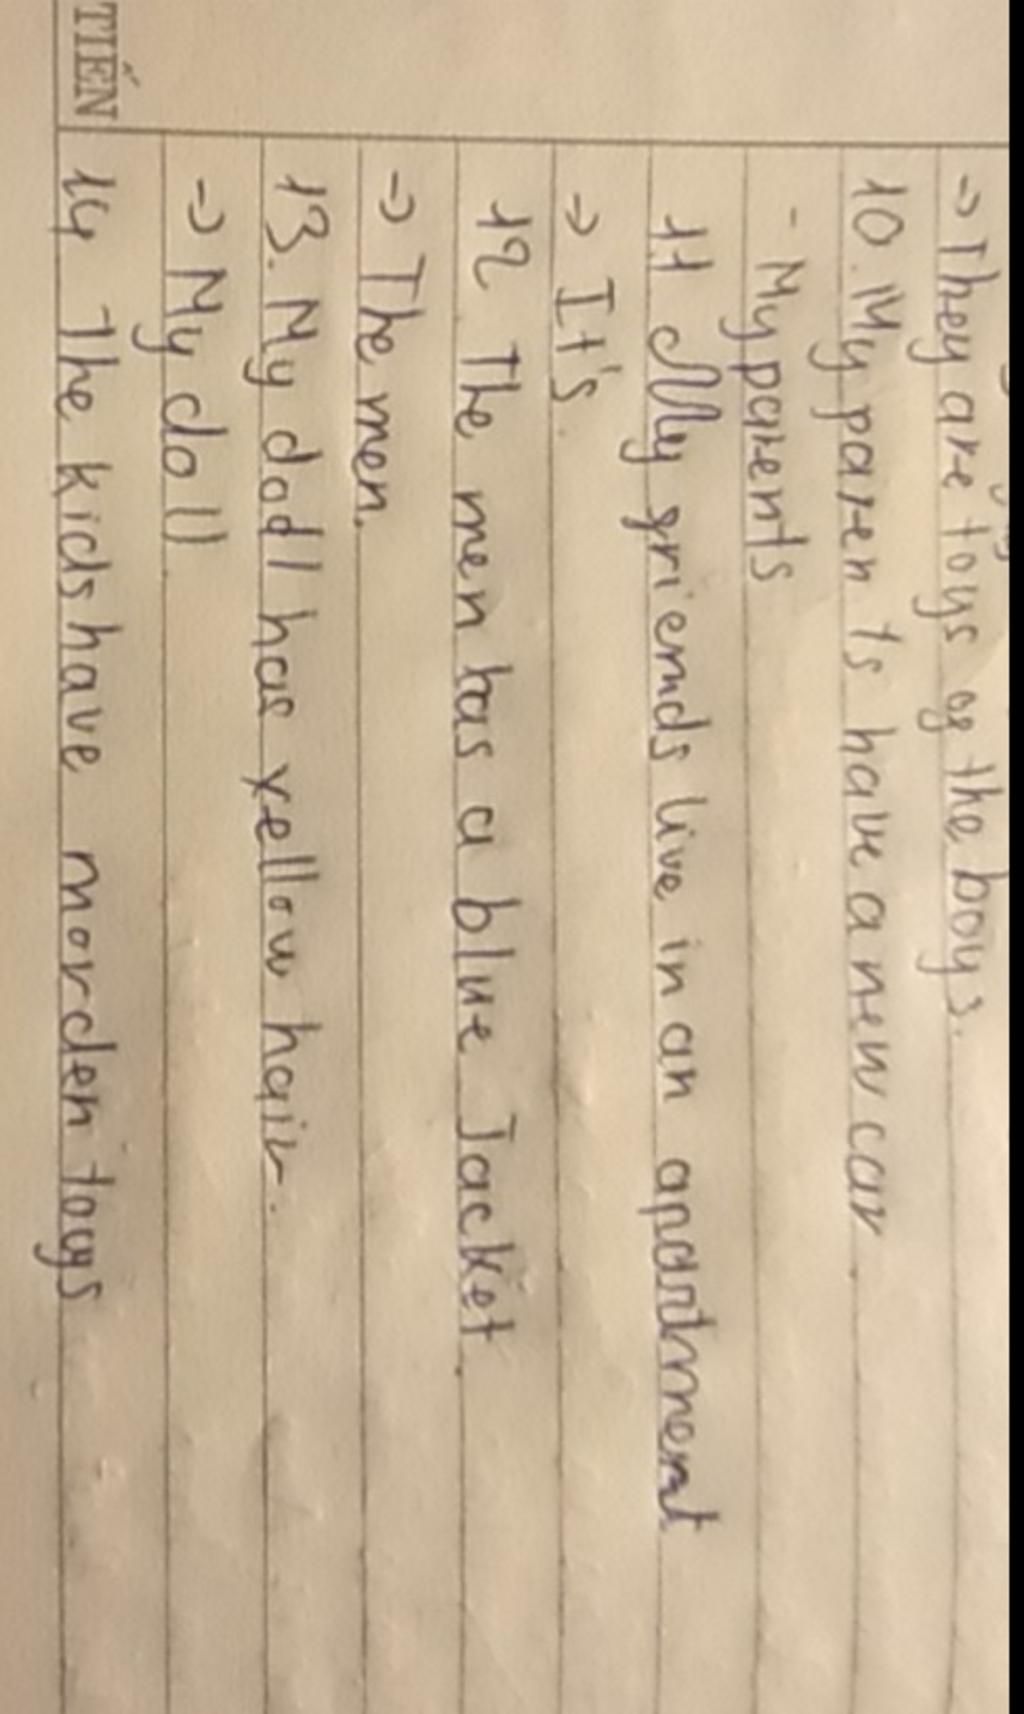 -> They are toys of the boys.
10. My paren ts have a new car.
- My parents
11 My friends live in an apartment
-> It's.
12 The men has a blue Jacket.
-> The men.
13. My doll has yellow hair.
-> My doll.
14 The kids have morden toys
TIẾN